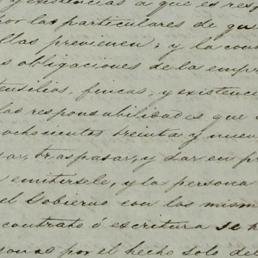 y existencias a que es resp
por las particulares de que
ellas previenen; y la cons
as obligaciones de la empre
tensilios, fincas, y existenc
las responsabilidades que
ochocientos treinta y nueve
sar, traspasar, y dar en p
emitirsele, y la persona
el Gobierno con las mism
contrato ó escritura se
por el hecho solo de